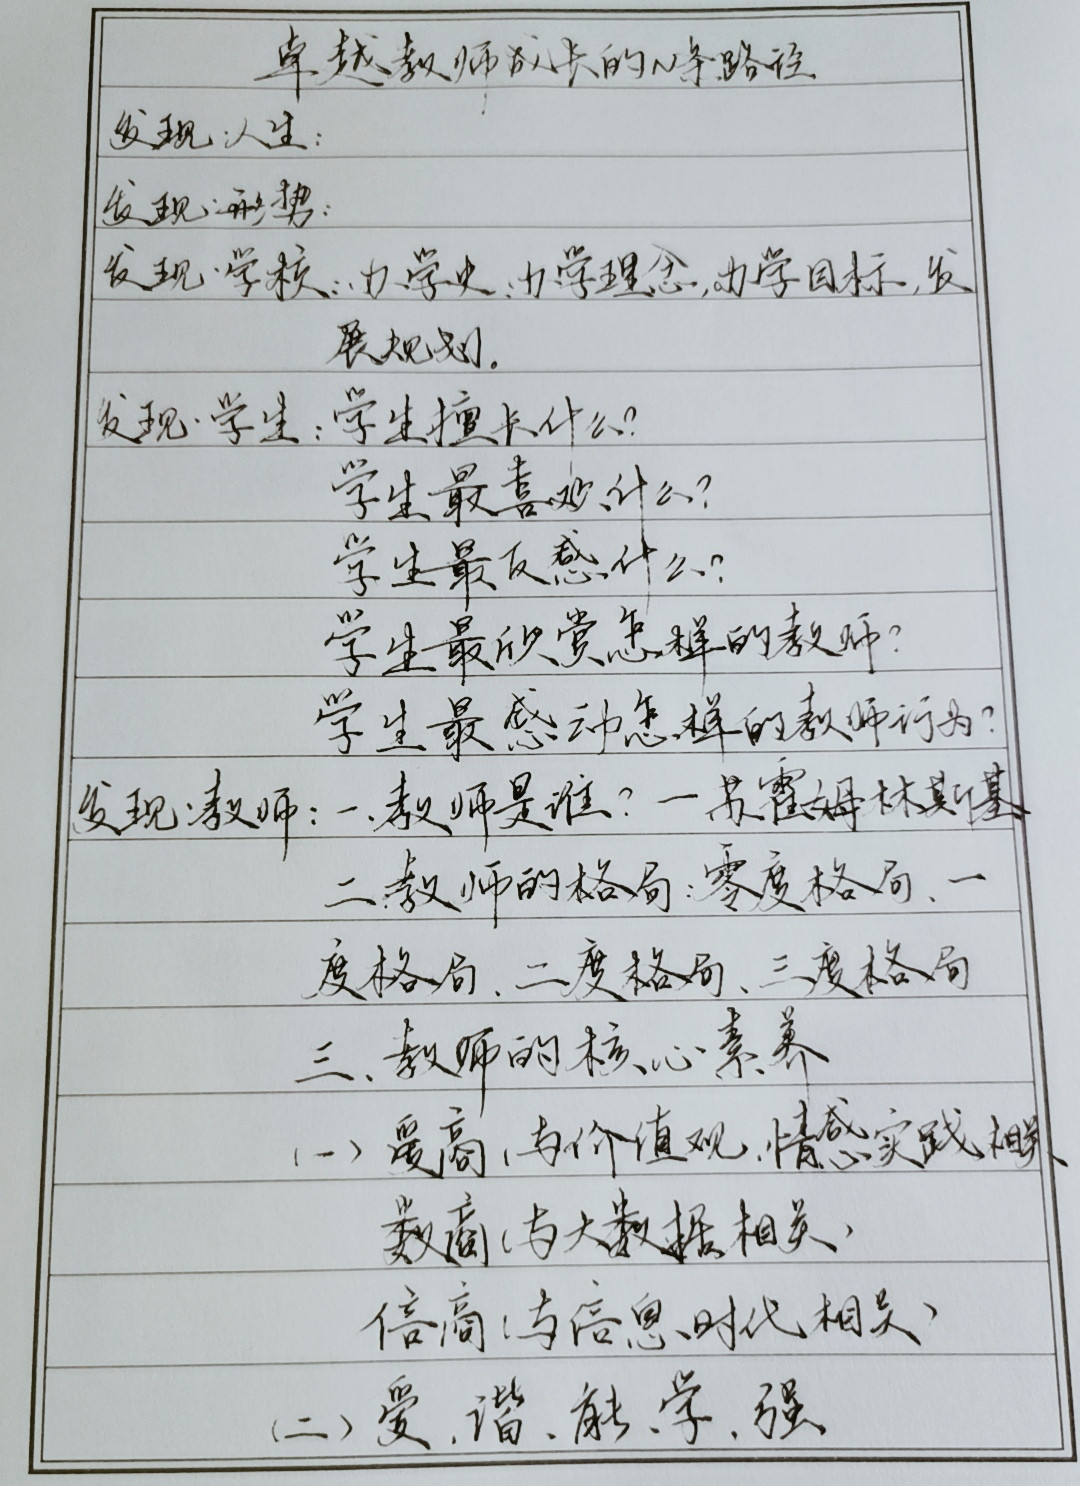 卓越教师成长的N条路径
发现·人生：
发现·形势：
发现·学校：办学史、办学理念，办学目标，发
展规划。
发现·学生：学生擅长什么？
学生最喜欢什么？
学生最反感什么？
学生最欣赏怎样的教师？
学生最感动怎样的教师行为？
发现·教师：一、教师是谁？一苏霍姆林斯基
二、教师的格局：零度格局、一
度格局、二度格局、三度格局
三、教师的核心素养
（一）爱商（与价值观、情感实践相关
数商（与大数据相关）
信商（与信息时代相关）
（二）爱、谐、能、学、强